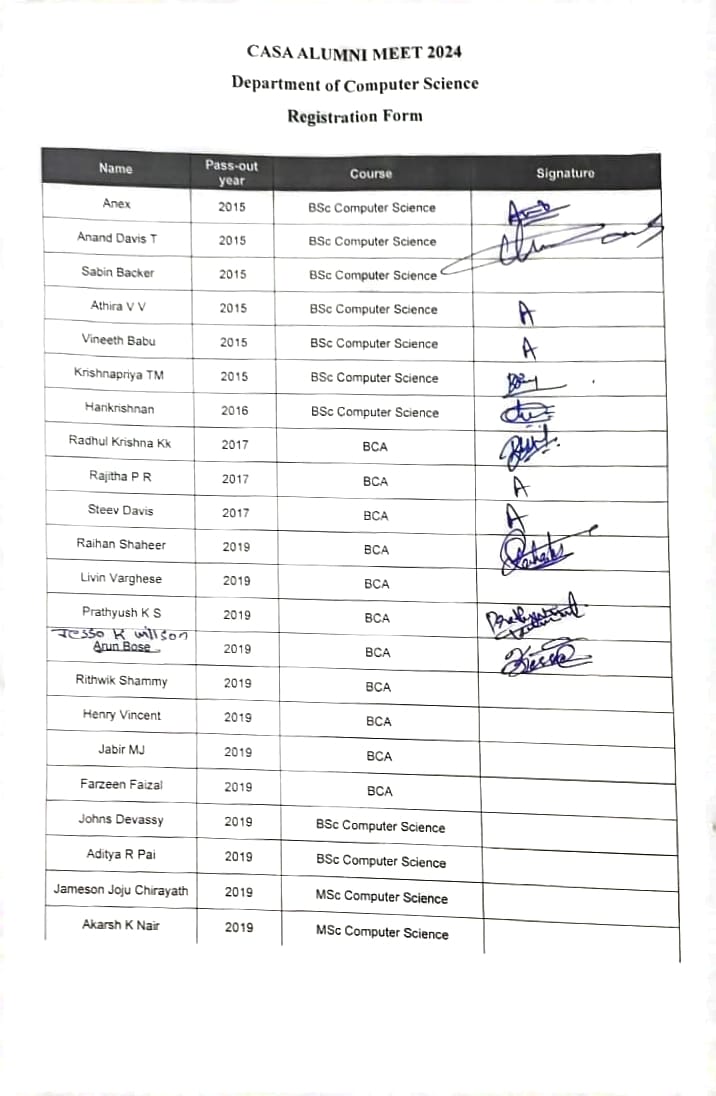 CASA ALUMNI MEET 2024
Department of Computer Science
Registration Form
Name Pass-out year Course Signature
Anex 2015 BSc Computer Science
Anand Davis T 2015 BSc Computer Science
Sabin Backer 2015 BSc Computer Science
Athira V V 2015 BSc Computer Science A
Vineeth Babu 2015 BSc Computer Science A
Krishnapriya TM 2015 BSc Computer Science
Harikrishnan 2016 BSc Computer Science
Radhul Krishna Kk 2017 BCA
Rajitha P R 2017 BCA A
Steev Davis 2017 BCA A
Raihan Shaheer 2019 BCA
Livin Varghese 2019 BCA
Prathyush K S 2019 BCA
Jesso K Willson
Arun Bose 2019 BCA
Rithwik Shammy 2019 BCA
Henry Vincent 2019 BCA
Jabir MJ 2019 BCA
Farzeen Faizal 2019 BCA
Johns Devassy 2019 BSc Computer Science
Aditya R Pai 2019 BSc Computer Science
Jameson Joju Chirayath 2019 MSc Computer Science
Akarsh K Nair 2019 MSc Computer Science